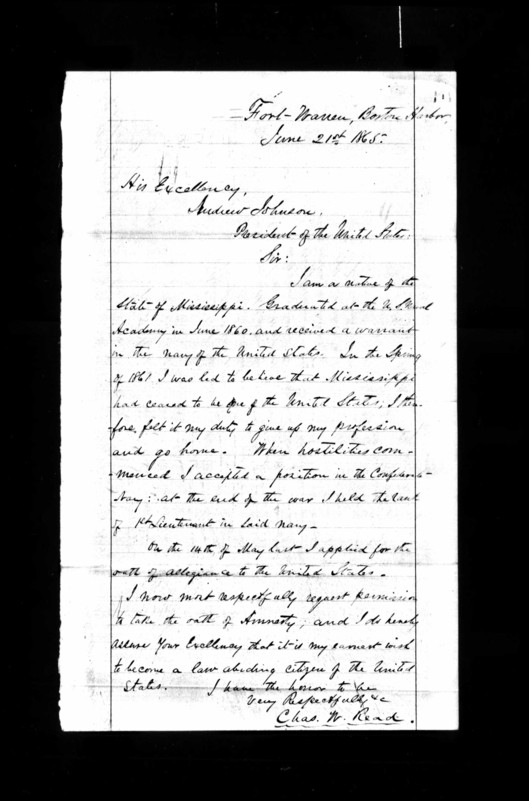 Fort Warren, Boston Harbor,
June 21st 1865.
His Excellency,
Andrew Johnson,
President of the United States:
Sir:
I am a native of the
State of Mississippi. Graduated at the U.S. Naval
Academy in June 1860. and received a warrant
in the navy of the United States. In the Spring
of 1861 I was led to believe that Mississippi
had ceased to be one of the United States; I there-
fore, felt it my duty to give up my profession
and go home. When hostilities com-
-menced I accepted a position in the Confederate
Navy: at the end of the war I held the rank
of 1st Lieutenant in said navy-
On the 14th of May last I applied for the
oath of allegiance to the United States.
I now most respectfully request permission
to take the oath of Amnesty; and I do hereby
assure Your Excellency that it is my earnest wish
to become a law abiding citizen of the United
States. I have the honor to be
Very Respectfully &c
Chas. W. Read.